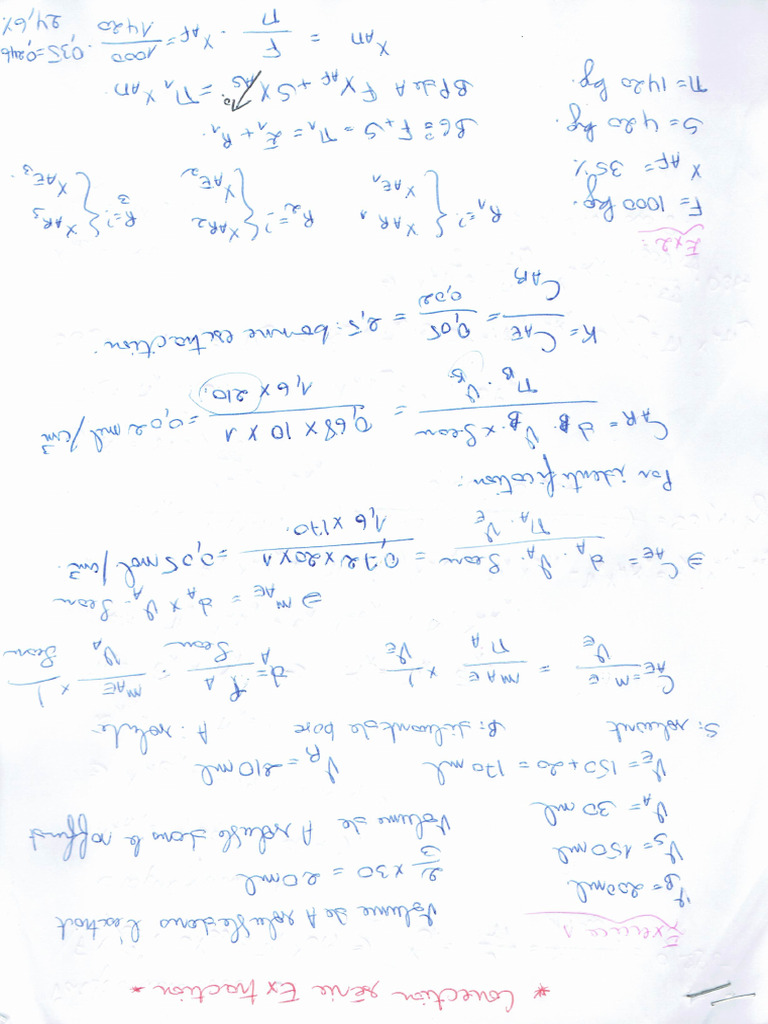 * Correction série Extraction *
Exercice 1
Volume de A soluble dans l'extrait
V_B = 200 ml
2/3 × 30 = 20 ml
V_S = 150 ml
Volume de A soluble dans le raffinat
V_A = 30 ml
V_E = 150 + 20 = 170 ml V_R = 210 ml
S: solvant B: diluant de base A: soluté
C_AE = n_E / V_E = m_AE / M_A × 1 / V_E d_A = ρ_A / ρ_eau = m_AE / V_A × 1 / ρ_eau
⇒ m_AE = d_A × V_A · ρ_eau
⇒ C_AE = d_A · V_A · ρ_eau / M_A · V_E = 0,72 × 20 × 1 / 1,6 × 170 = 0,05 mol/cm³
Par identification :
C_AR = d_B · V_B × ρ_eau / M_B · V_R = 0,68 × 10 × 1 / 1,6 × 210 = 0,02 mol/cm³
K = C_AE / C_AR = 0,05 / 0,02 = 2,5 : bonne extraction.
Ex2 :
F = 1000 kg. R_1 = ? { X_AR1 X_AE1 R_2 = ? { X_AR2 X_AE2 R_3 = ? { X_AR3 X_AE3
X_AF = 35%
S = 420 kg. BG : F + S = M_1 = E_1 + R_1
M = 1420 kg. BP de A F X_AF + S X_AS = M_1 X_AM
X_AM = F / M · X_AF = 1000 / 1420 · 0,35 = 0,246
24,6%